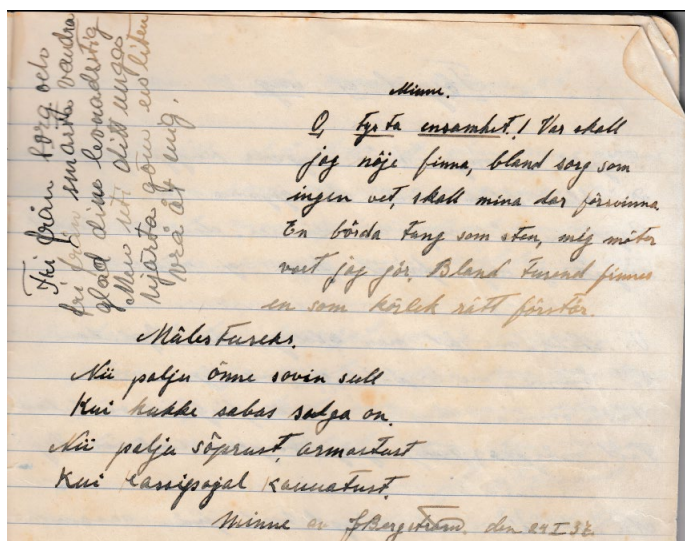 Fri från sorg och
fri från smärta vandra
glad dine levnadsstig
Men uti ditt unga
hjärta göm en liten
vrå åt mig.
Minne.
O, tysta ensamhet! Var skall
jag nöje finna, bland sorg som
ingen vet, skall mina dar försvinna
En börda tung som sten, mig möter
vart jag går. Bland tusend finnes
en som kärlek rätt förstår.
Mälestuseks.
Nii palju õnne sovin sull
Kui kukke sabas sulga on.
Nii palju sõprust, armastust
Kui kassipojal kannatust.
Minne av J Bergström. den 24 I 37.